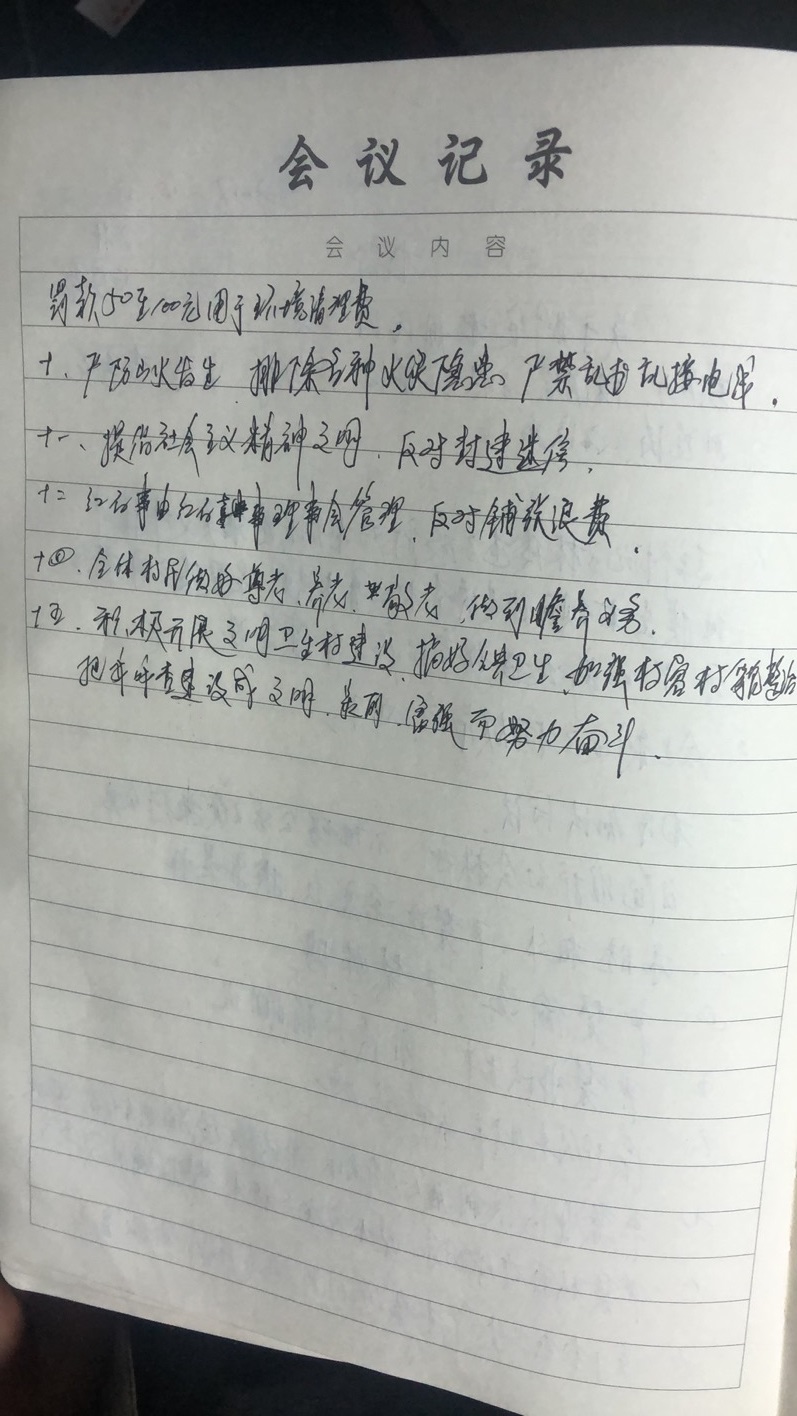 会议记录
会议内容
罚款50至100元用于环境清理费.
十、严防山火发生 排除各种火灾隐患 严禁乱拉乱接电线.
十一、提倡社会主义精神文明、反对封建迷信.
十二 红白事由红白事理事会管理、反对铺张浪费.
十四、全体村民做好尊老、养老、敬老、做到赡养义务.
十五、积极开展文明卫生村建设、搞好公共卫生、加强村容村貌整治
把 建设成文明、美丽、富强而努力奋斗.